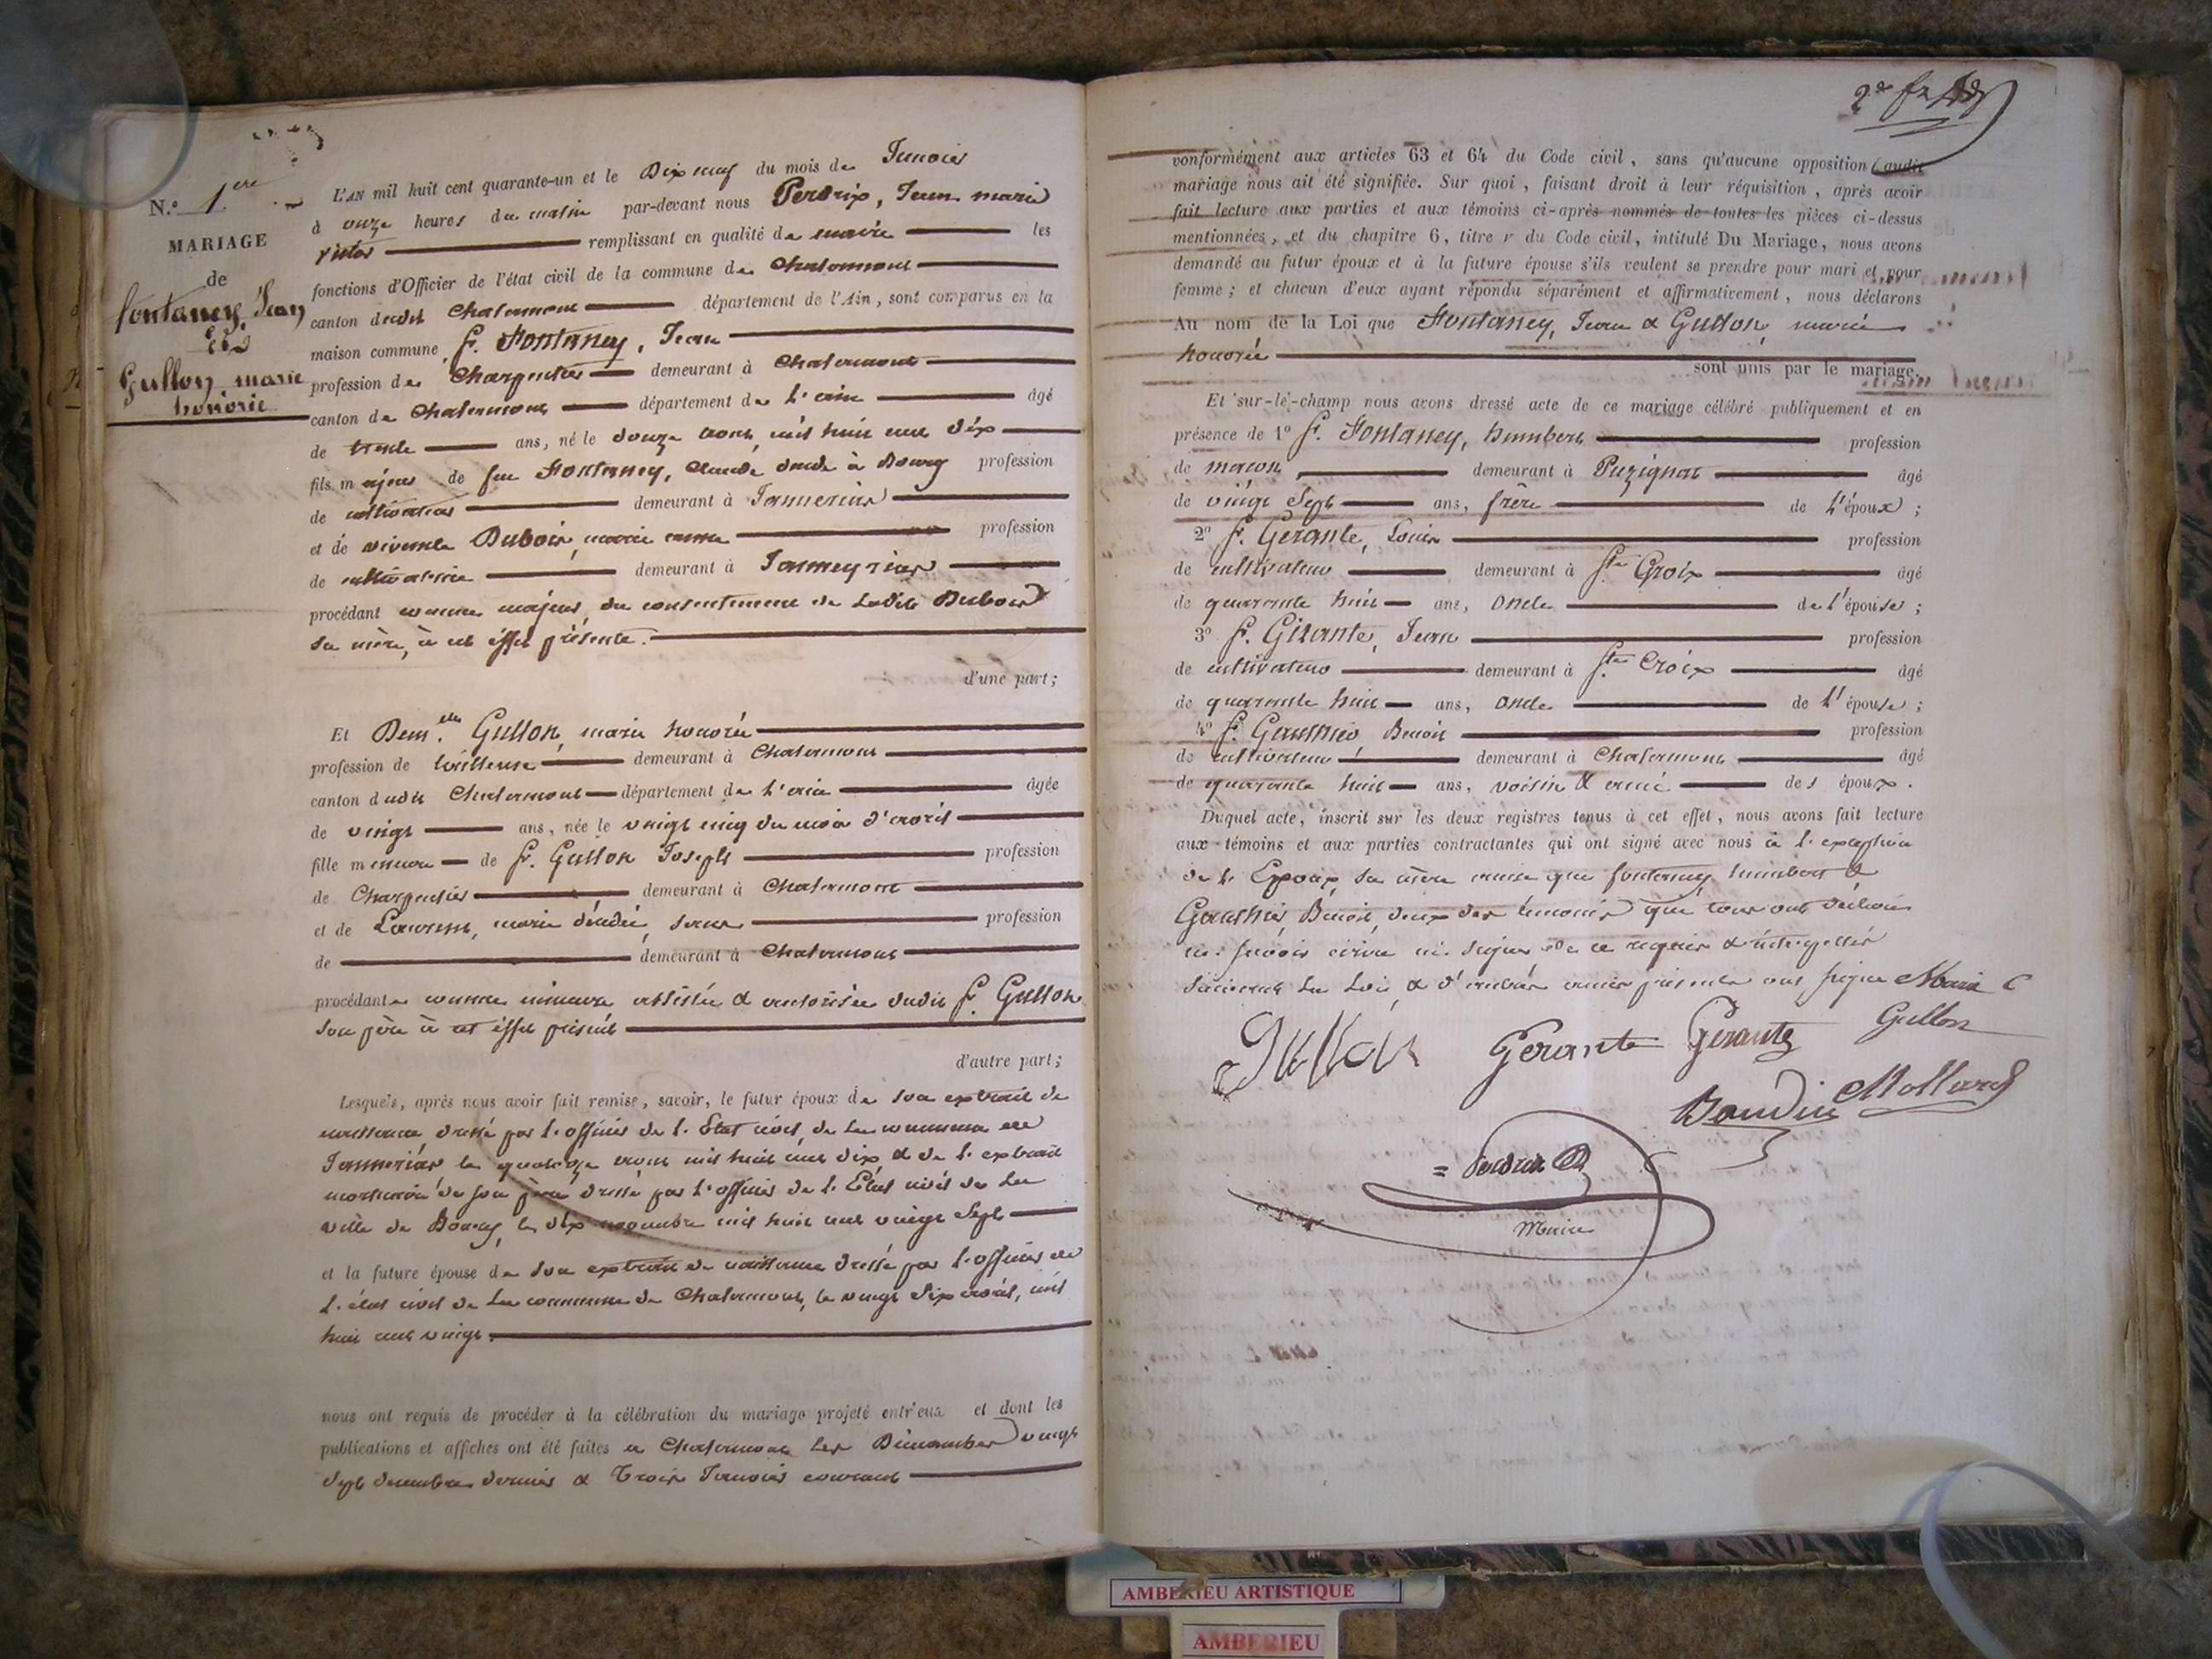 N.º 1ere
MARIAGE
de
fontaney, Jean
Et
Gullon marie
honorie
L'AN mil huit cent quarante-un et le Dix neuf du mois de Janvier
à onze heures du matin par-devant nous Perdrix, Jean marie
victor remplissant en qualité de maire les
fonctions d'Officier de l'état civil de la commune de Chalamont
canton dudit Chalamont département de l'Ain, sont comparus en la
maison commune, S. Fontaney, Jean
profession de Charpentier demeurant à Chalamont
canton de Chalamont département de l'ain âgé
de trente ans, né le douze août mil huit cent dix
fils majeur de feu Fontaney, Claude décédé à Bourg profession
de cultivateur demeurant à Janneriar
et de vivente Dubois, marie profession
de cultivatrice demeurant à Janneyriar
procédant comme majeur, du consentement de ladite Dubois
sa mère, à cet éffet présente.
d'une part;
Et Dem.elle Gullon, marie honorée
profession de tailleuse demeurant à Chalamont
canton dudit Chalamont département de l'ain âgée
de vingt ans, née le vingt cinq du mois d'avril
fille mineure de S. Gullon Joseph profession
de Charpentier demeurant à Chalamont
et de Laurent, marie profession
de demeurant à Chalamont
procédante comme mineure assistée & autorisée dudit S. Gullon
son père à cet éffet présent
d'autre part;
Lesquels, après nous avoir fait remise, savoir, le futur époux de son extrait de
naissance dressé par l'officier de l'Etat civil de la commune de
Janneriar le quatorze août mil huit cent dix & de l'extrait
mortuaire de son père dressé par l'officier de l'Etat civil de la
ville de Bourg, le dix novembre mil huit cent vingt sept
et la future épouse de son extrait de naissance dressé par l'officier de
l'état civil de la commune de Chalamont, le vingt six avril, mil
huit cent vingt.
nous ont requis de procéder à la célébration du mariage projeté entr'eux et dont les
publications et affiches ont été faites à Chalamont les Dimanches vingt
sept decembre dernier & trois Janvier courant
2e
conformément aux articles 63 et 64 du Code civil, sans qu'aucune opposition audit
mariage nous ait été signifiée. Sur quoi, faisant droit à leur réquisition, après avoir
fait lecture aux parties et aux témoins ci-après nommés de toutes les pièces ci-dessus
mentionnées, et du chapitre 6, titre V du Code civil, intitulé Du Mariage, nous avons
demandé au futur époux et à la future épouse s'ils veulent se prendre pour mari et pour
femme; et chacun d'eux ayant répondu séparément et affirmativement, nous déclarons
Au nom de la Loi que Fontaney, Jean & Gullon, marie
honorée
sont unis par le mariage.
Et sur-le-champ nous avons dressé acte de ce mariage célébré publiquement et en
présence de 1º S. Fontaney, humbert profession
de macon demeurant à Puzignat âgé
de vingt sept ans, frère de l'époux;
2º S. Gerante, Louis profession
de cultivateur demeurant à Ste Croix âgé
de quarante huit ans, oncle de l'épouse;
3º S. Girante, Jean profession
de cultivateur demeurant à Ste Croix âgé
de quarante huit ans, oncle de l'épouse;
4º S. Gauthier, Benoit profession
de cultivateur demeurant à Chalamont âgé
de quarante huit ans, voisin & ami des époux.
Duquel acte, inscrit sur les deux registres tenus à cet effet, nous avons fait lecture
aux témoins et aux parties contractantes qui ont signé avec nous à l'exception
de l'Epoux, sa mère ainsi que fontaney humbert &
Gauthier, Benoit, deux des temoins qui tous ont déclaré
ne savoir écrire ni signer de ce requis & interpellés
suivant la loi, & d'autres amis présents ont signé Marie
Gullon Gerante Gerante Gullon
Baudin Mollard
= Perdrix
Maire
AMBERIEU ARTISTIQUE
AMBERIEU